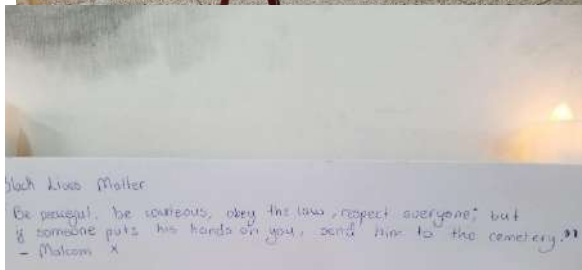 Black Lives Matter
Be peaceful, be courteous, obey the law, respect everyone; but
if someone puts his hands on you, send him to the cemetery."
- Malcom X